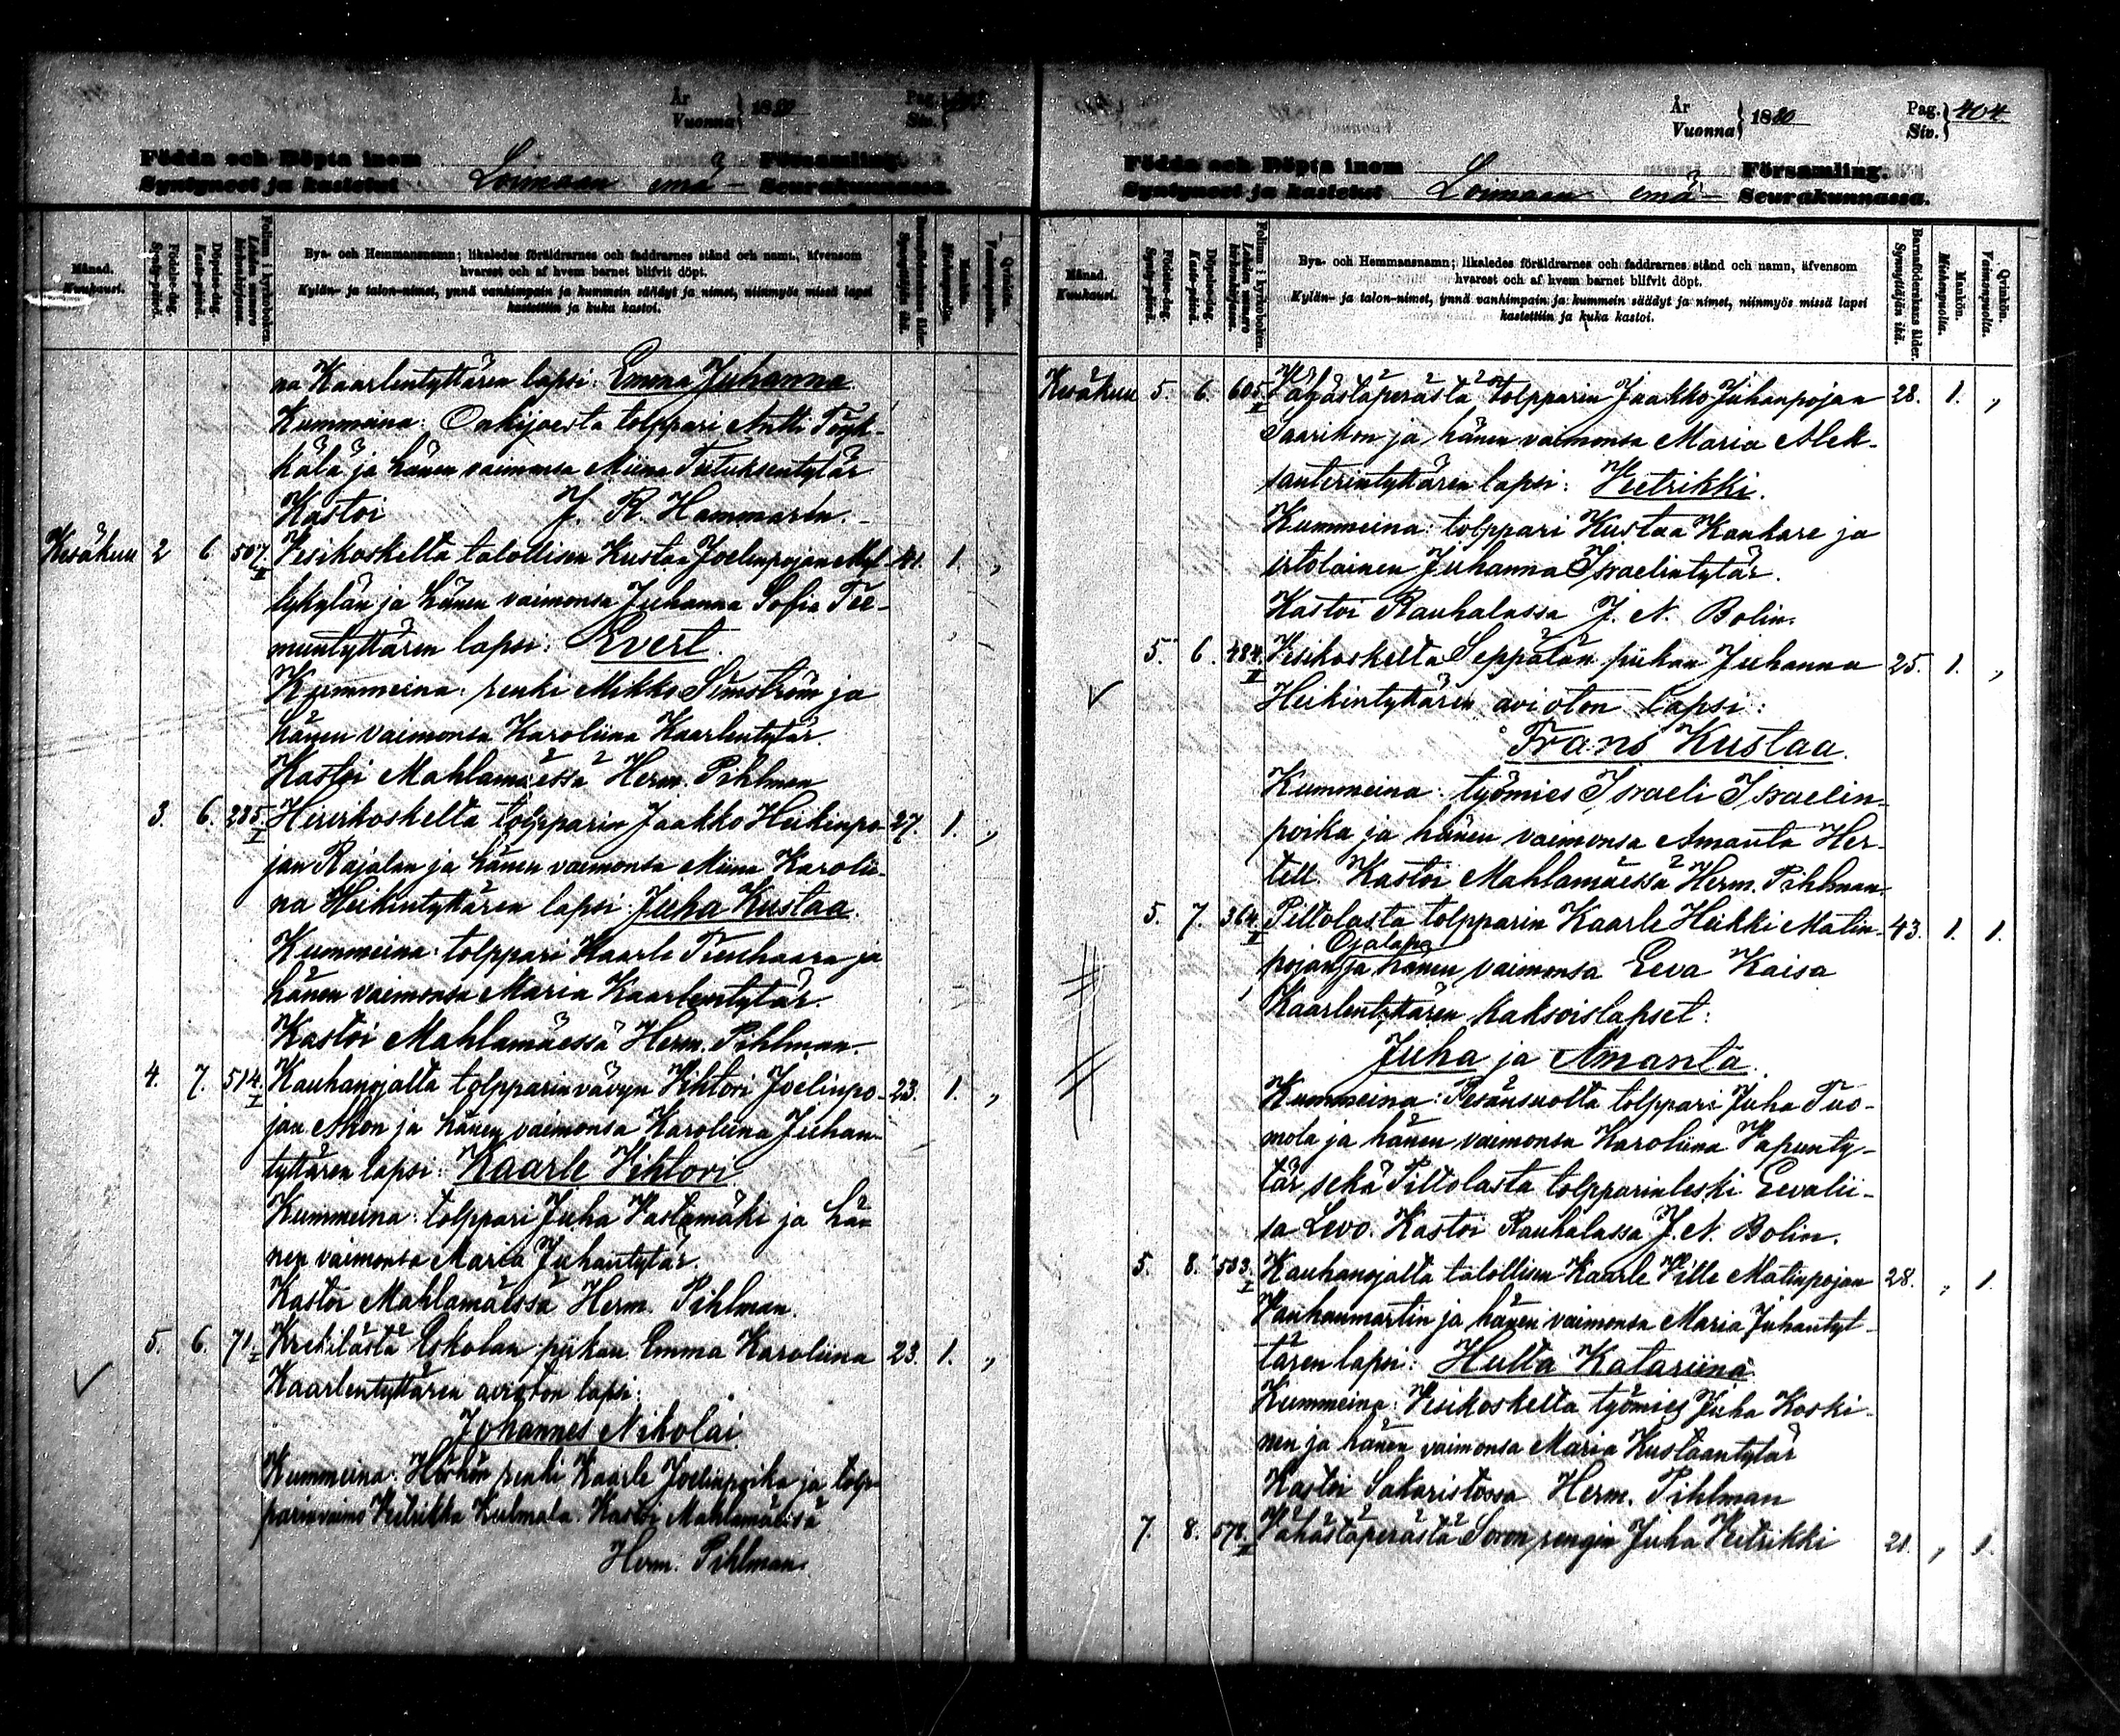 År
Vuonna } 1880
Pag.
Siv. }
Födda och Döpta inom
Syntyneet ja kastetut Loimaan emä- Församling.
Seurakunnassa.
Månad.
Kuukausi.
Födelse-dag.
Synty-päivä.
Döpelse-dag.
Kaste-päivä.
Folium i kyrkoboken.
Lehden numero kirkonkirjassa.
Bya- och Hemmansnamn; likaledes föräldrarnes och faddrarnes stånd och namn, äfvensom
hvarest och af hvem barnet blifvit döpt.
Kylän- ja talon-nimet, ynnä vanhimpain ja kummein säädyt ja nimet, niinmyös missä lapsi
kastettiin ja kuka kastoi.
Barnaföderskans ålder.
Synnyttäjän ikä.
Mankön.
Miehenpuolta.
Qvinkön.
Vaimonpuolta.
na Kaarlentyttären lapsi: Emma Juhanna
Kummeina: Onkijoesta tolppari Antti
kälä ja hänen vaimonsa Miina Tiituksentytär
Kastoi J. R. Hammarén.
Kesäkuu 2 6 507. II Vesikoskelta talollisen Kustaa Joelinpojan Myl- 41. 1. „
lykylän ja hänen vaimonsa Juhanna Sofia Tee-
muntyttären lapsi: Evert.
Kummeina: renki Mikko ja
hänen vaimonsa Karoliina Kaarlentytär.
Kastoi Mahlamäessä Herm. Pihlman
3. 6. 285. I Hirvikoskelta tolpparin Jaakko Heikinpo- 27. 1. „
jan Rajalan ja hänen vaimonsa Miina Karolii-
na Heikintyttären lapsi Juha Kustaa.
Kummeina: tolppari Kaarle ja
hänen vaimonsa Maria Kaarlentytär.
Kastoi Mahlamäessä Herm. Pihlman.
4. 7. 514. I Kauhanojalta tolpparinvävyn Vihtori Joelinpo- 23. 1. „
jan Ahon ja hänen vaimonsa Karoliina Juhan-
tyttären lapsi: Kaarle Vihtori.
Kummeina: tolppari Juha Vastamäki ja hä-
nen vaimonsa Maria Juhantytär.
Kastoi Mahlamäessä Herm. Pihlman.
5. 6. 71. I Krekilästä Eskolan piikan Emma Karoliina 23. 1. „
Kaarlentyttären avioton lapsi:
Johannes Nikolai.
Kummeina: renki Kaarle Joelinpoika ja tolp-
parinvaimo Vetrikka Kulmala. Kastoi Mahlamäessä
Herm. Pihlman.
År
Vuonna } 1880
Pag.
Siv. } 404
Födda och Döpta inom
Syntyneet ja kastetut Loimaan emä- Församling.
Seurakunnassa.
Månad.
Kuukausi.
Födelse-dag.
Synty-päivä.
Döpelse-dag.
Kaste-päivä.
Folium i kyrkoboken.
Lehden numero kirkonkirjassa.
Bya- och Hemmansnamn; likaledes föräldrarnes och faddrarnes stånd och namn, äfvensom
hvarest och af hvem barnet blifvit döpt.
Kylän- ja talon-nimet, ynnä vanhimpain ja kummein säädyt ja nimet, niinmyös missä lapsi
kastettiin ja kuka kastoi.
Barnaföderskans ålder.
Synnyttäjän ikä.
Mankön.
Miehenpuolta.
Qvinkön.
Vaimonpuolta.
Kesäkuu 5. 6. 605. II Vähästäperästä tolpparin Jaakko Juhanpojan 28. 1. „
Saarikon ja hänen vaimonsa Maria Alek-
santerintyttären lapsi: Vietrikki.
Kummeina: tolppari Kustaa Kankare ja
irtolainen Juhanna Israelintytär.
Kastoi Rauhalassa J. N. Bolin.
5. 6. 484. II Vesikoskelta Seppälän piikan Juhanna 25. 1. „
Heikintyttären avioton lapsi:
Frans Kustaa.
Kummeina: työmies Israeli Israelin-
poika ja hänen vaimonsa Amanta Her-
tell. Kastoi Mahlamäessä Herm. Pihlman.
5. 7. 364. II Piltolasta tolpparin Kaarle Heikki Matin- 43. 1. 1.
Ojalan
pojan ja hänen vaimonsa Eeva Kaisa
Kaarlentyttären kaksoislapset:
Juha ja Amanta.
Kummeina: Pesänsuolta tolppari Juha Tuo-
mola ja hänen vaimonsa Karoliina Vapunty-
tär sekä Piltolasta tolpparinleski Eevalii-
sa Levo. Kastoi Rauhalassa J. N. Bolin.
5. 8. 533. I Kauhanojalta talollisen Kaarle Ville Matinpojan 28. „ 1.
Vanhanmartin ja hänen vaimonsa Maria Juhantyt-
tären lapsi: Hulta Katariina.
Kummeina: Vesikoskelta työmies Juha Koski-
nen ja hänen vaimonsa Maria Kustaantytär
Kastoi Sakaristossa Herm. Pihlman
7. 8. 578. II Vähästäperästä Soron rengin Juha Vietrikki 21. „ 1.